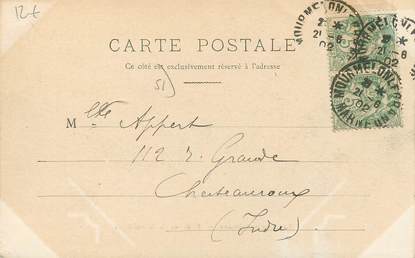 12€
CARTE POSTALE
Ce côté est exclusivement réservé à l'adresse
51
Mlle Appert
112 r. Grande
Chateauroux
(Indre)
MOURMELON
21
6
02
MOURMELON-LE-GD
21
6
02
MARNE